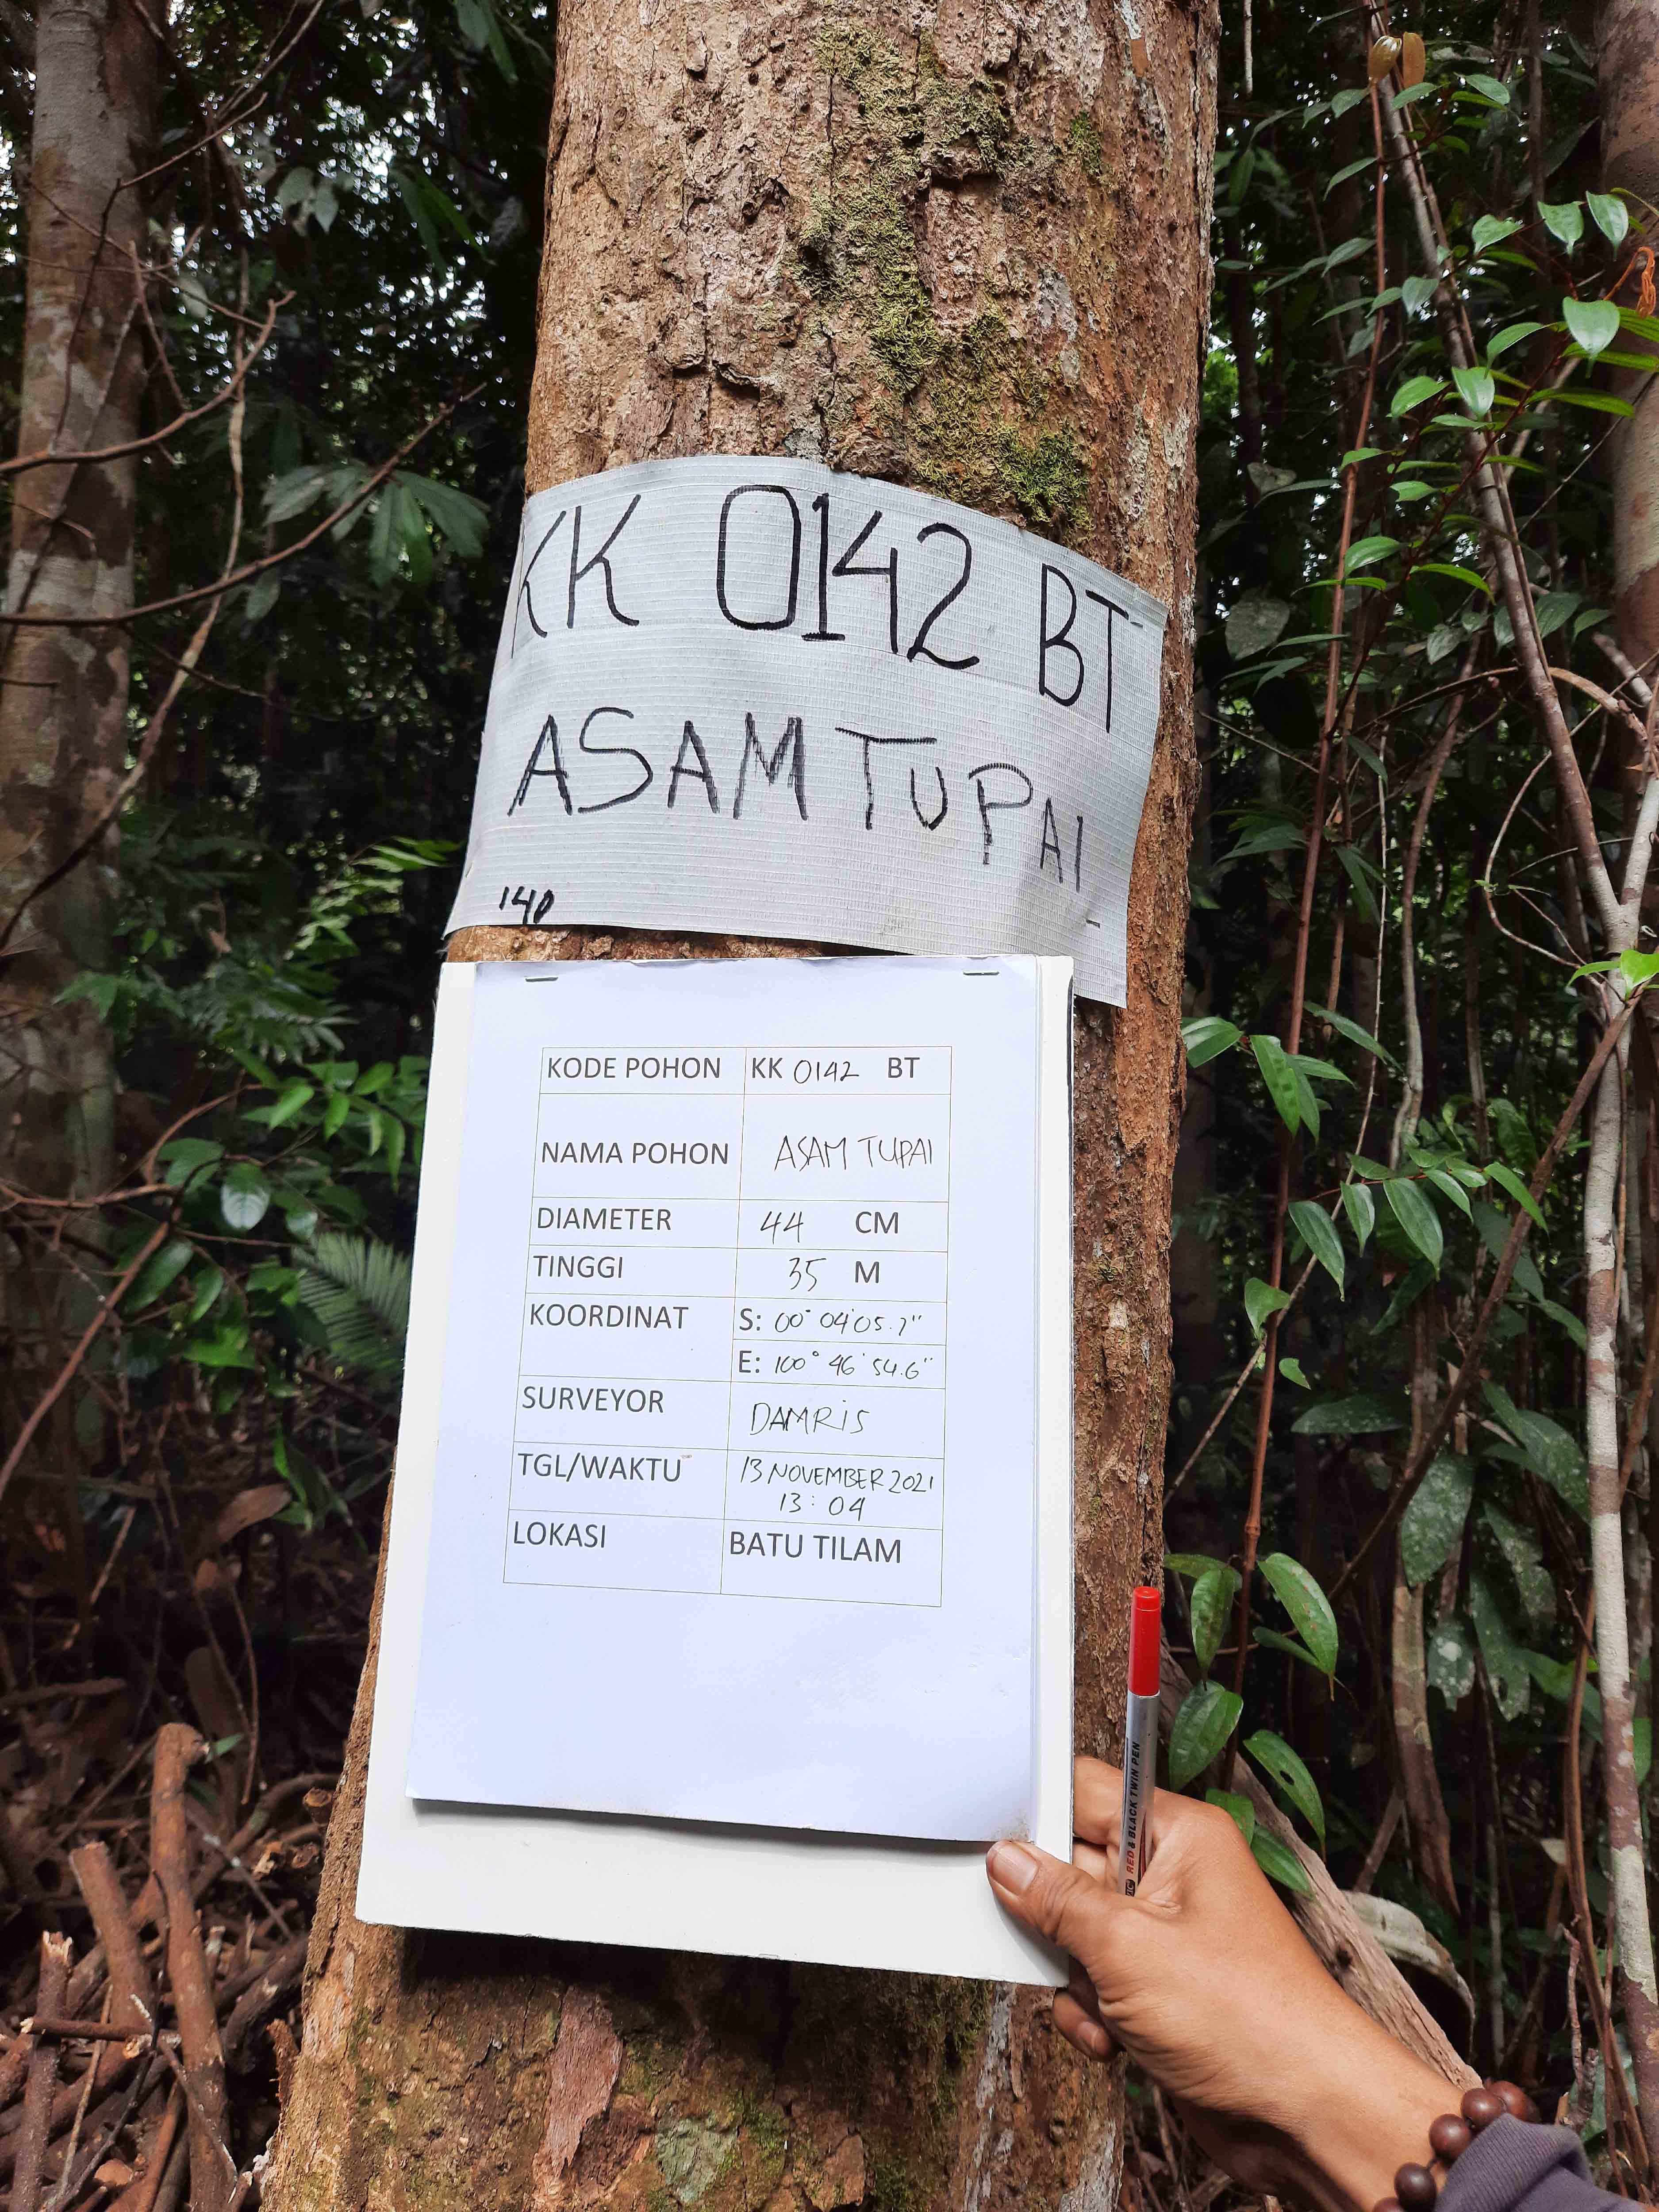 KK 0142 BT
ASAM TUPAI
140
KODE POHON KK 0142 BT
NAMA POHON ASAM TUPAI
DIAMETER 44 CM
TINGGI 35 M
KOORDINAT S: 00° 04' 05.7"
E: 100° 46' 54.6"
SURVEYOR DAMRIS
TGL/WAKTU 13 NOVEMBER 2021
13:04
LOKASI BATU TILAM
RED & BLACK TWIN PEN